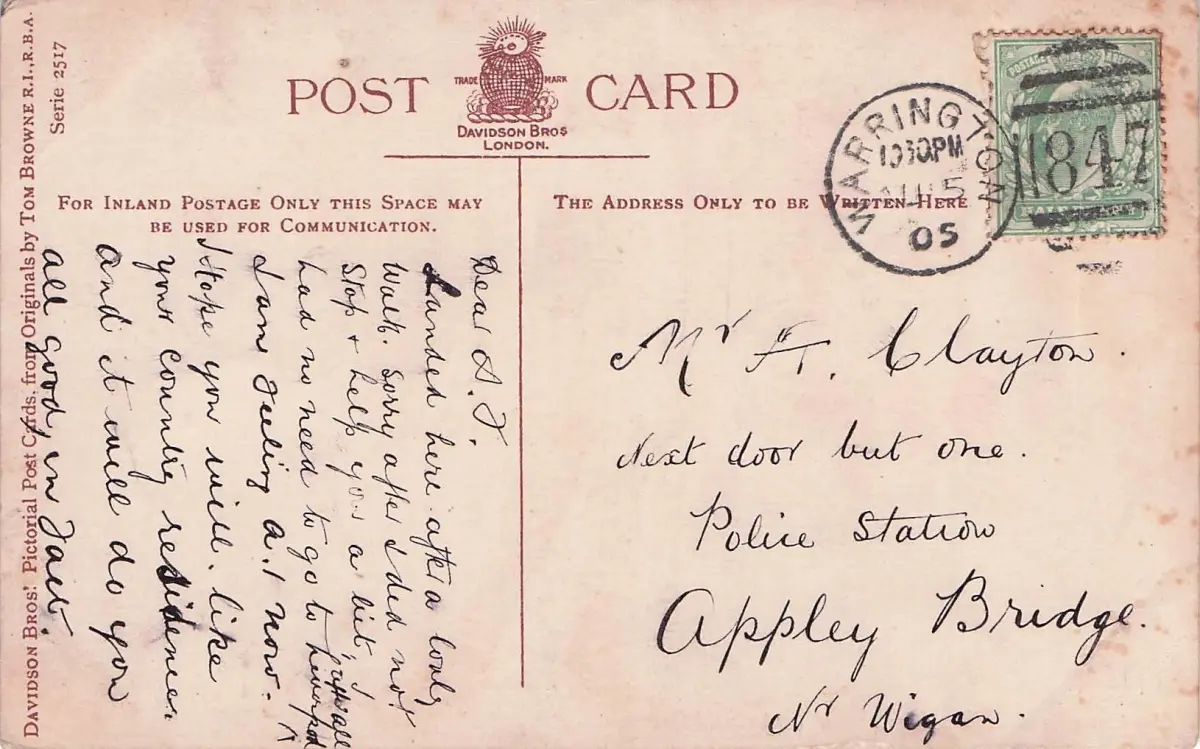 POST CARD
TRADE MARK
DAVIDSON BROS
LONDON.
FOR INLAND POSTAGE ONLY THIS SPACE MAY
BE USED FOR COMMUNICATION.
THE ADDRESS ONLY TO BE WRITTEN HERE
WARRINGTON
10 30PM
5
05
847
POSTAGE
Dear
Landed here after a lovely
walk. Sorry after I did not
Stop & help you a bit, I
had no need to go to Liverpool
after all
I am feeling A.1 now.
I Hope you will like
your Country residence
and it will do you
all good, in
Mr H. Clayton.
Next door but one.
Police Station
Appley Bridge.
Nr Wigan.
DAVIDSON BROS' Pictorial Post Cards, from Originals by TOM BROWNE R.I., R.B.A.
Serie 2517